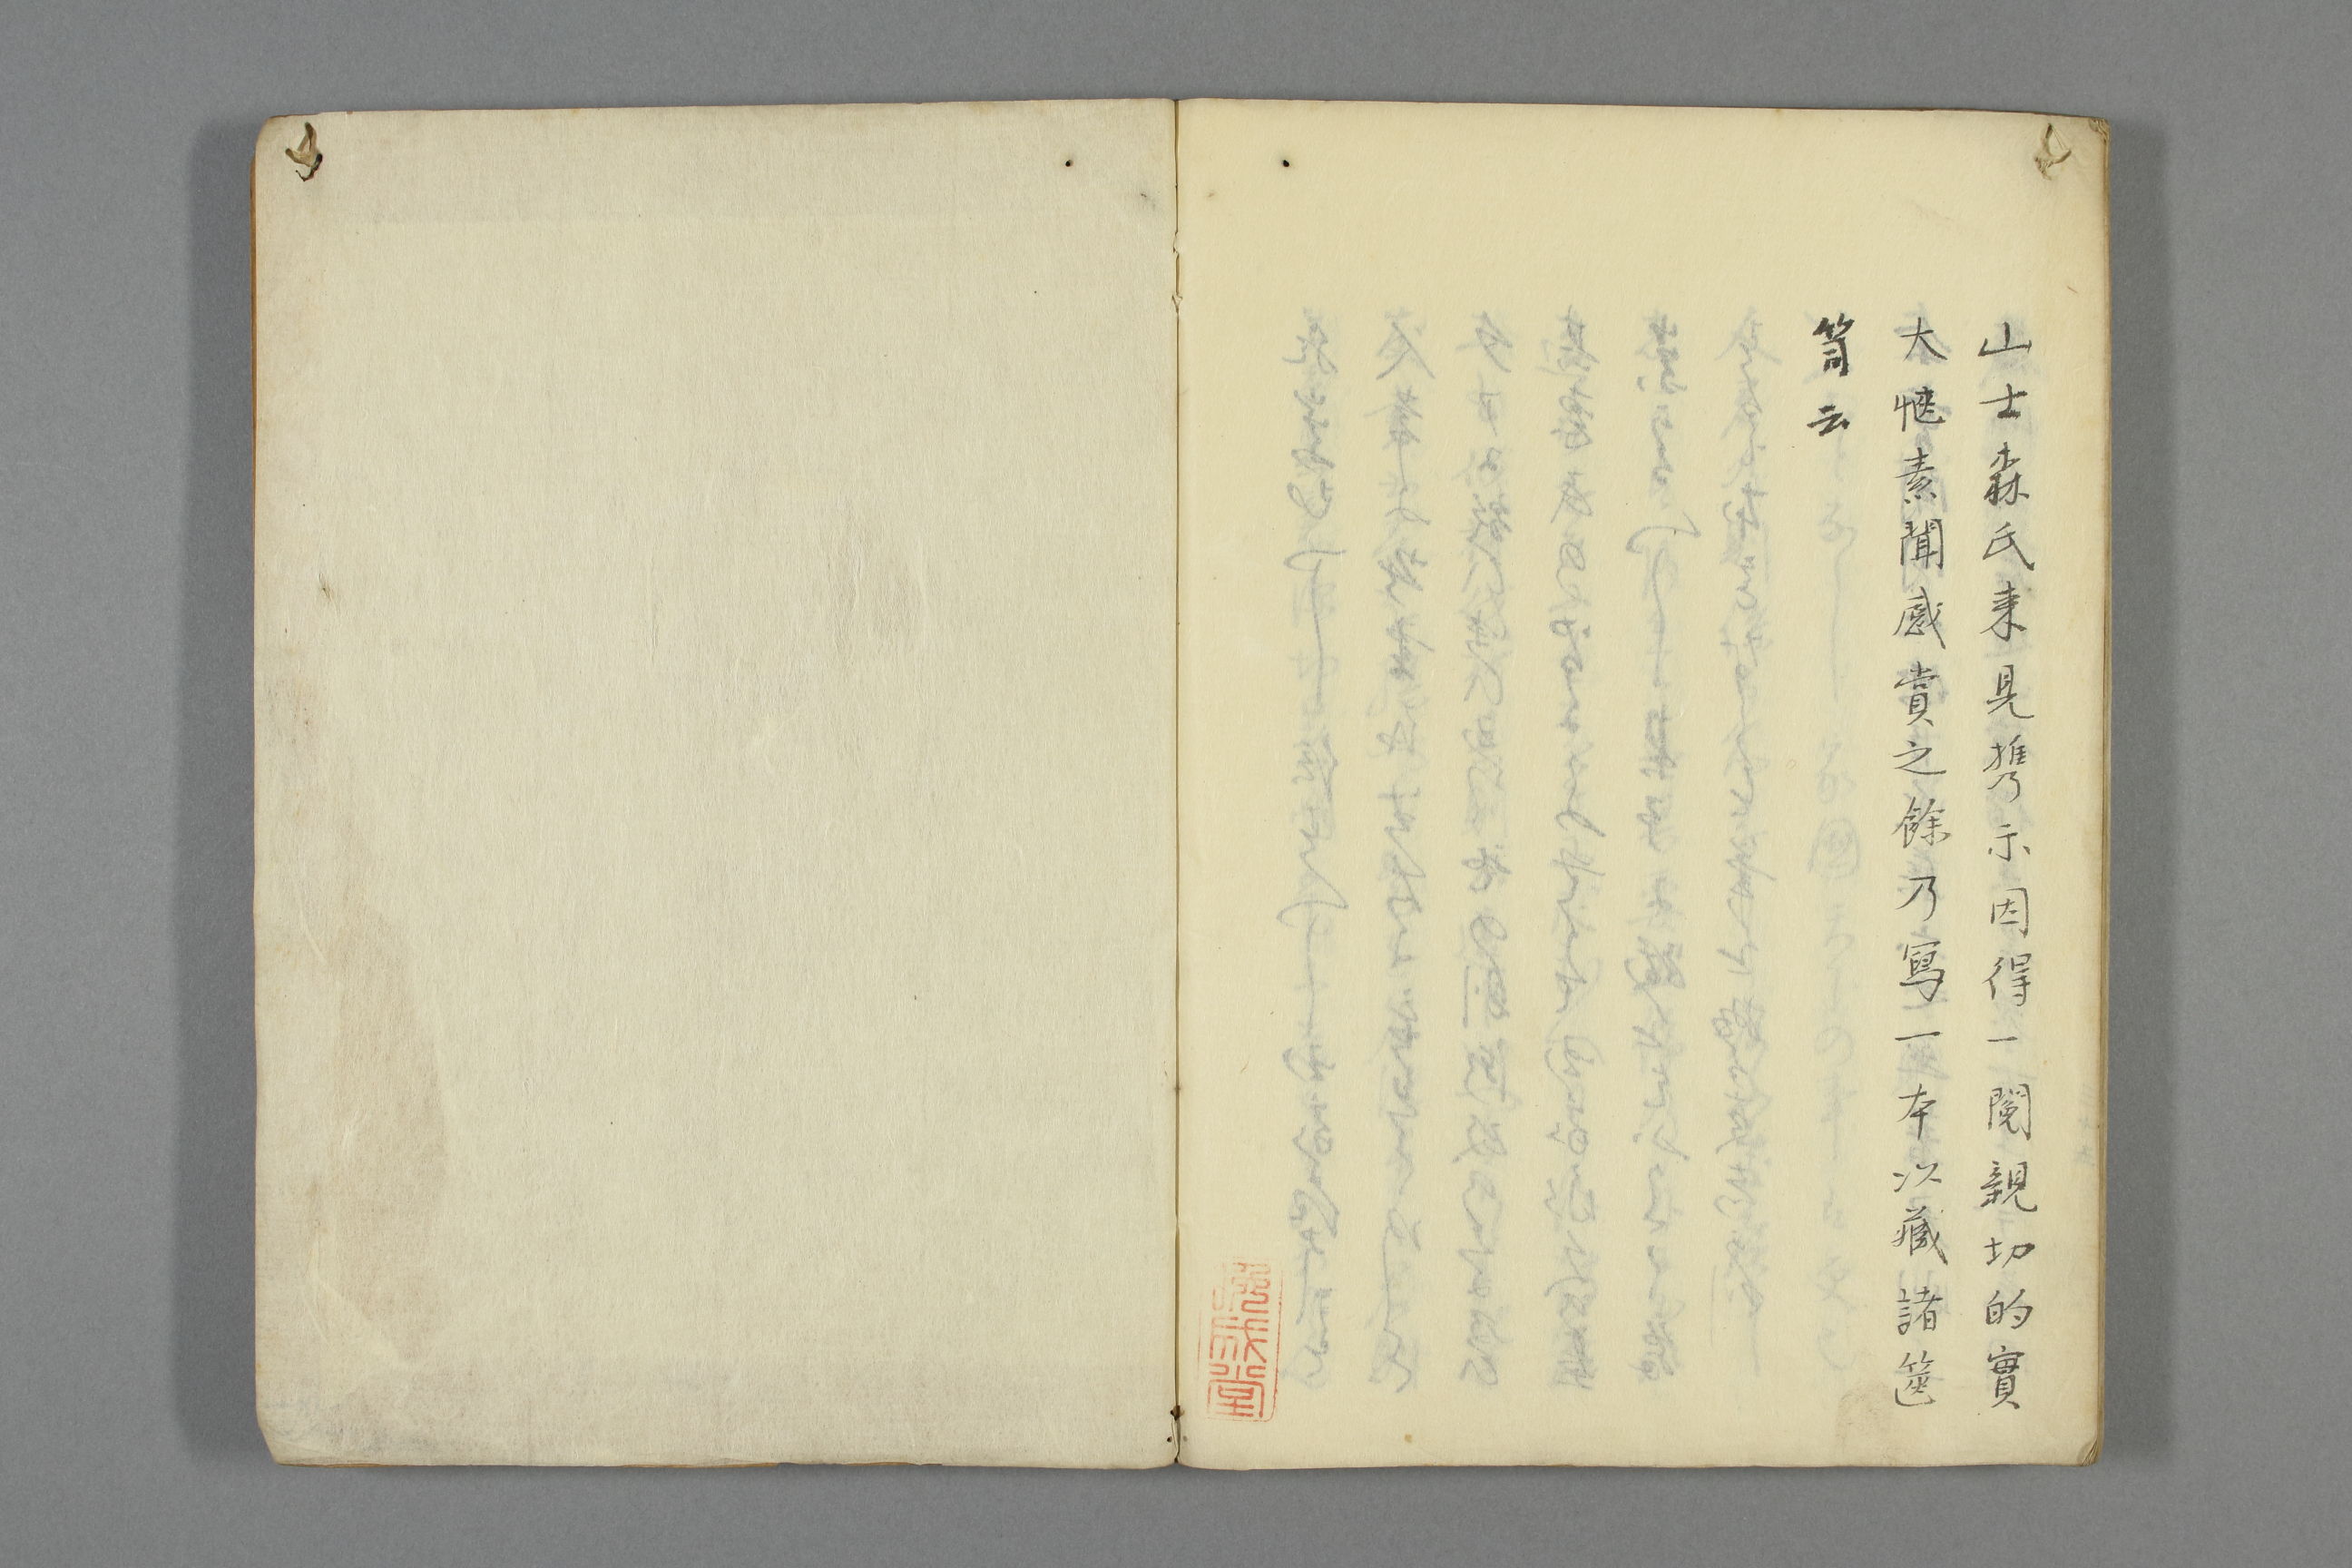 山士森氏来見携示因得一閲親切的實
大愜素聞感賞之餘乃寫一本以藏諸篋
笥云